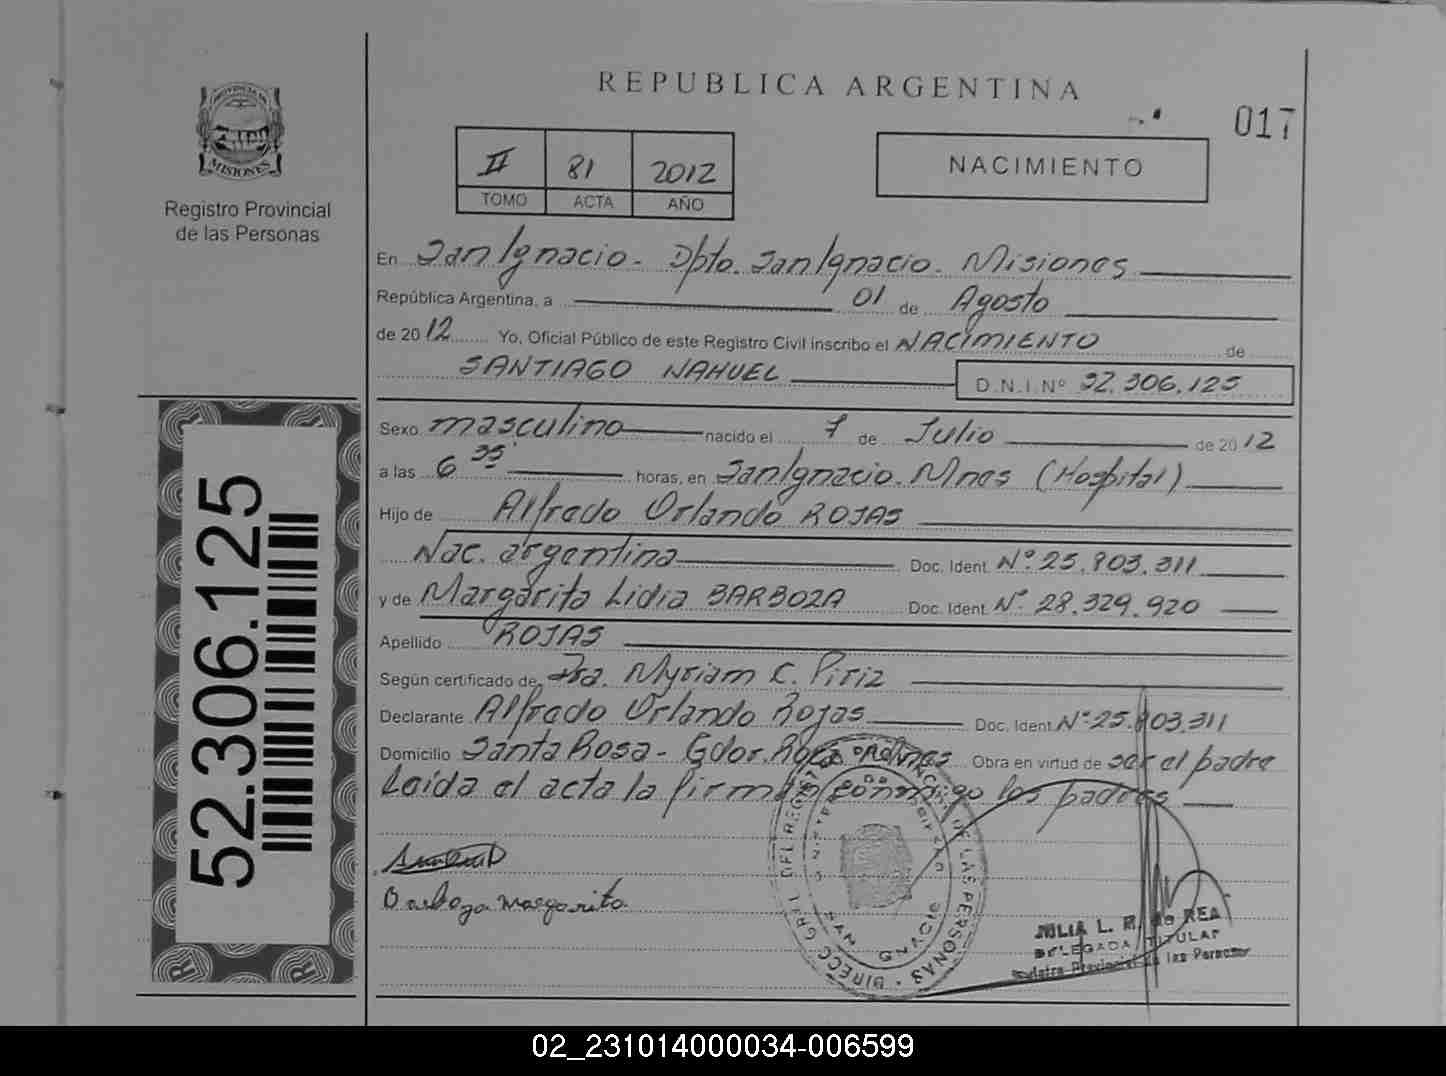 REPUBLICA ARGENTINA
017
PROVINCIA DE
MISIONES
Registro Provincial
de las Personas
II 81 2012
TOMO ACTA AÑO
NACIMIENTO
En San Ignacio - Dpto. San Ignacio. Misiones
República Argentina, a 01 de Agosto
de 2012 Yo, Oficial Público de este Registro Civil inscribo el NACIMIENTO de
SANTIAGO NAHUEL D.N.I.Nº 52.306.125
Sexo masculino nacido el 7 de Julio de 2012
a las 6 35' horas, en San Ignacio. Mnes (Hospital)
Hijo de Alfredo Orlando ROJAS
Nac. argentina Doc. Ident. Nº 25.903.311
y de Margarita Lidia BARBOZA Doc. Ident. Nº 28.329.920
Apellido ROJAS
Según certificado de Dra. Myriam C. Piriz
Declarante Alfredo Orlando Rojas Doc. Ident Nº 25.903.311
Domicilio Santa Rosa - Gdor. Roca Mnes Obra en virtud de ser el padre
Leída el acta la firman conmigo los padres
Barboza Margarita
DIRECC GRAL DEL REGIST PROVINC DE LAS PERSONAS
SAN IGNACIO
JULIA L. R. de REA
DELEGADA TITULAR
Registro Provincial de las Personas
52.306.125
02_231014000034-006599